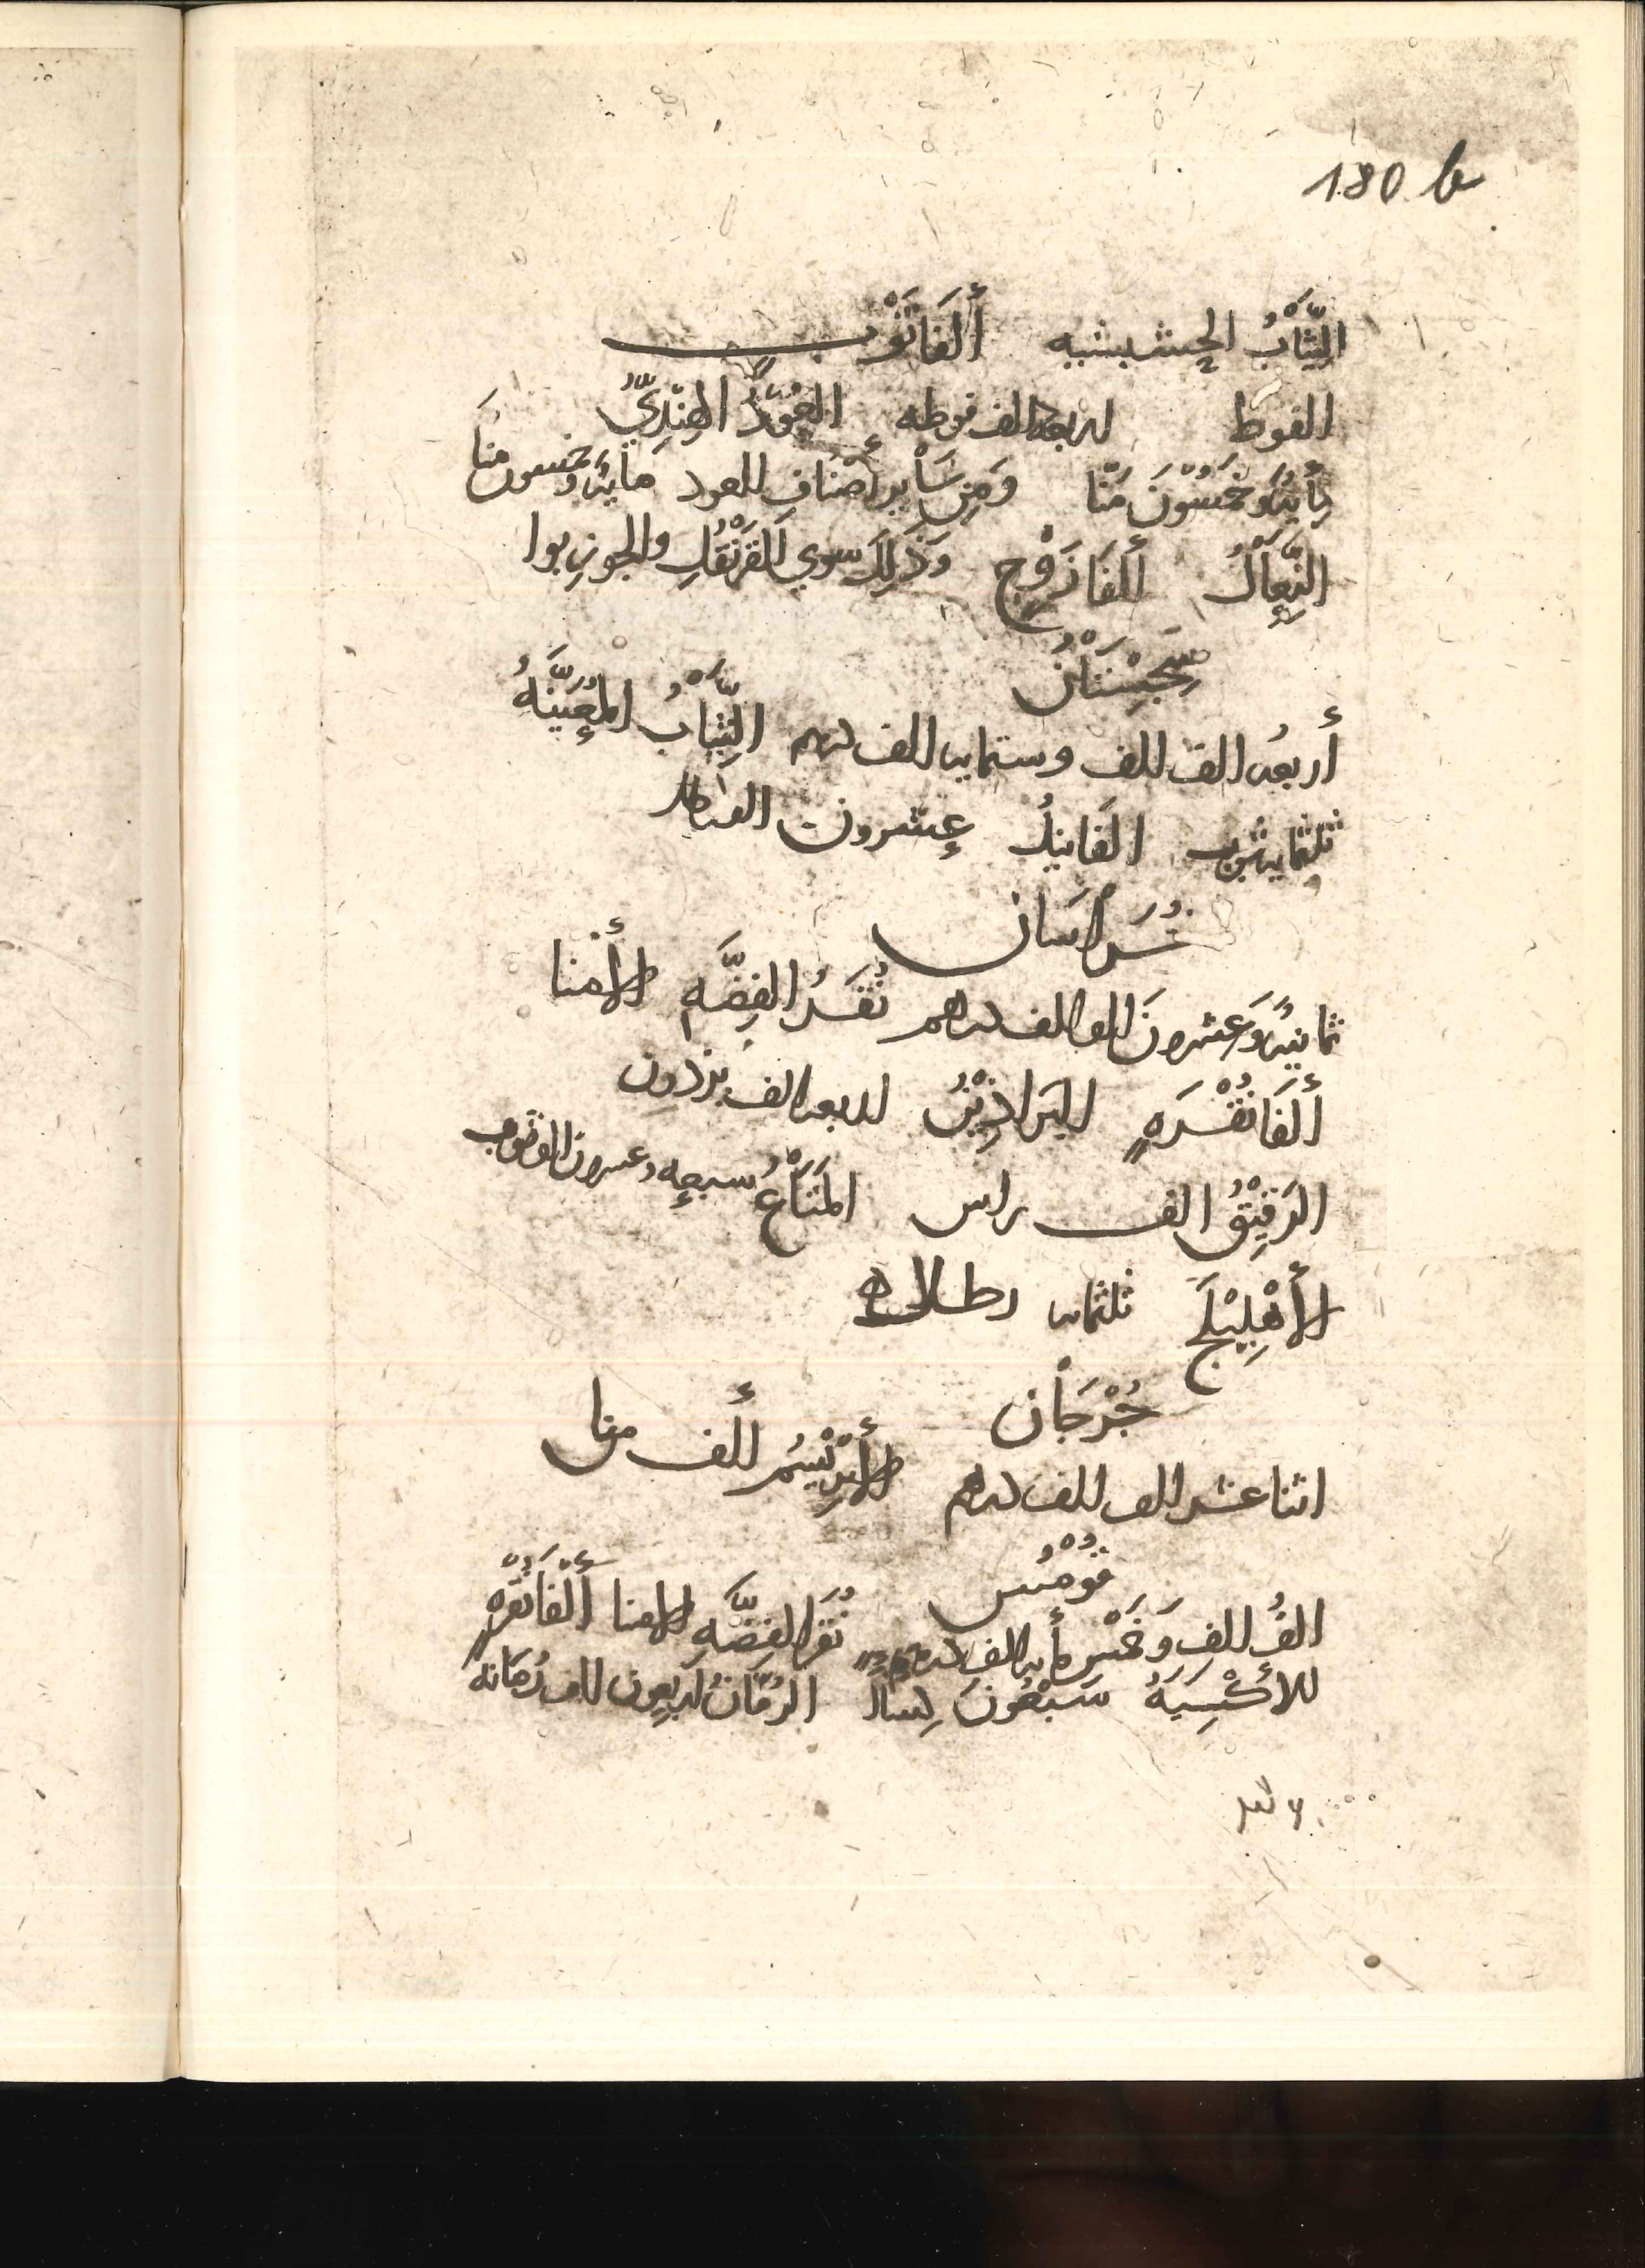 180 b
الثِّيَابُ الحشيشيه أَلفَا ثَوْبٍ
الفوط اربعه الف فوطه العُوْدُ الهِنْدِيُّ
مِأيةٌ وَخَمْسُوْنَ مَنًّا وَمِن سَاْيرِ أَصْنَافِ العود مايةٌ وَخمسون منَا
النِّعَالُ أَلفَا زَوْجٍ وَذَلِكَ سوي القَرَنْفُلِ والجوزِ بوا
سِجِسْتَانُ
أربعه الف الف وستمايه الف درهم الثِّيَابُ المُعَيَّنَهُ
ثلثمايه ثوب الفَانِيذُ عِشرون الف رطل
خُرَاسَان
ثمانيةٌ وَعِشرونَ الف الف درهم نُقَرُ الفِضَّهِ الأمنا
أَلفَا نُقْرَهٍ البَرَاذِيْنُ اربعه الف برذون
الرَقِيْقُ الف راس المَتَاْعُ سبعه وعشرون الف ثوب
الأهْلِيْلَج ثلثمايه رطل
جُرْجَان
اثنا عشر الف الف درهم الأَبْرِيْسِمُ ألف منا
قُوْمُس
الفُ الفِ وَخَمْس مأيه الف درهم نُقَرُ الفِضَّهِ الامنا أَلْفَا نُقْرَهٍ
الأَكْسِيَةُ سَبْعُوْنَ كِسَاءً الرُمَّانُ اربعون الف رُمَّانه